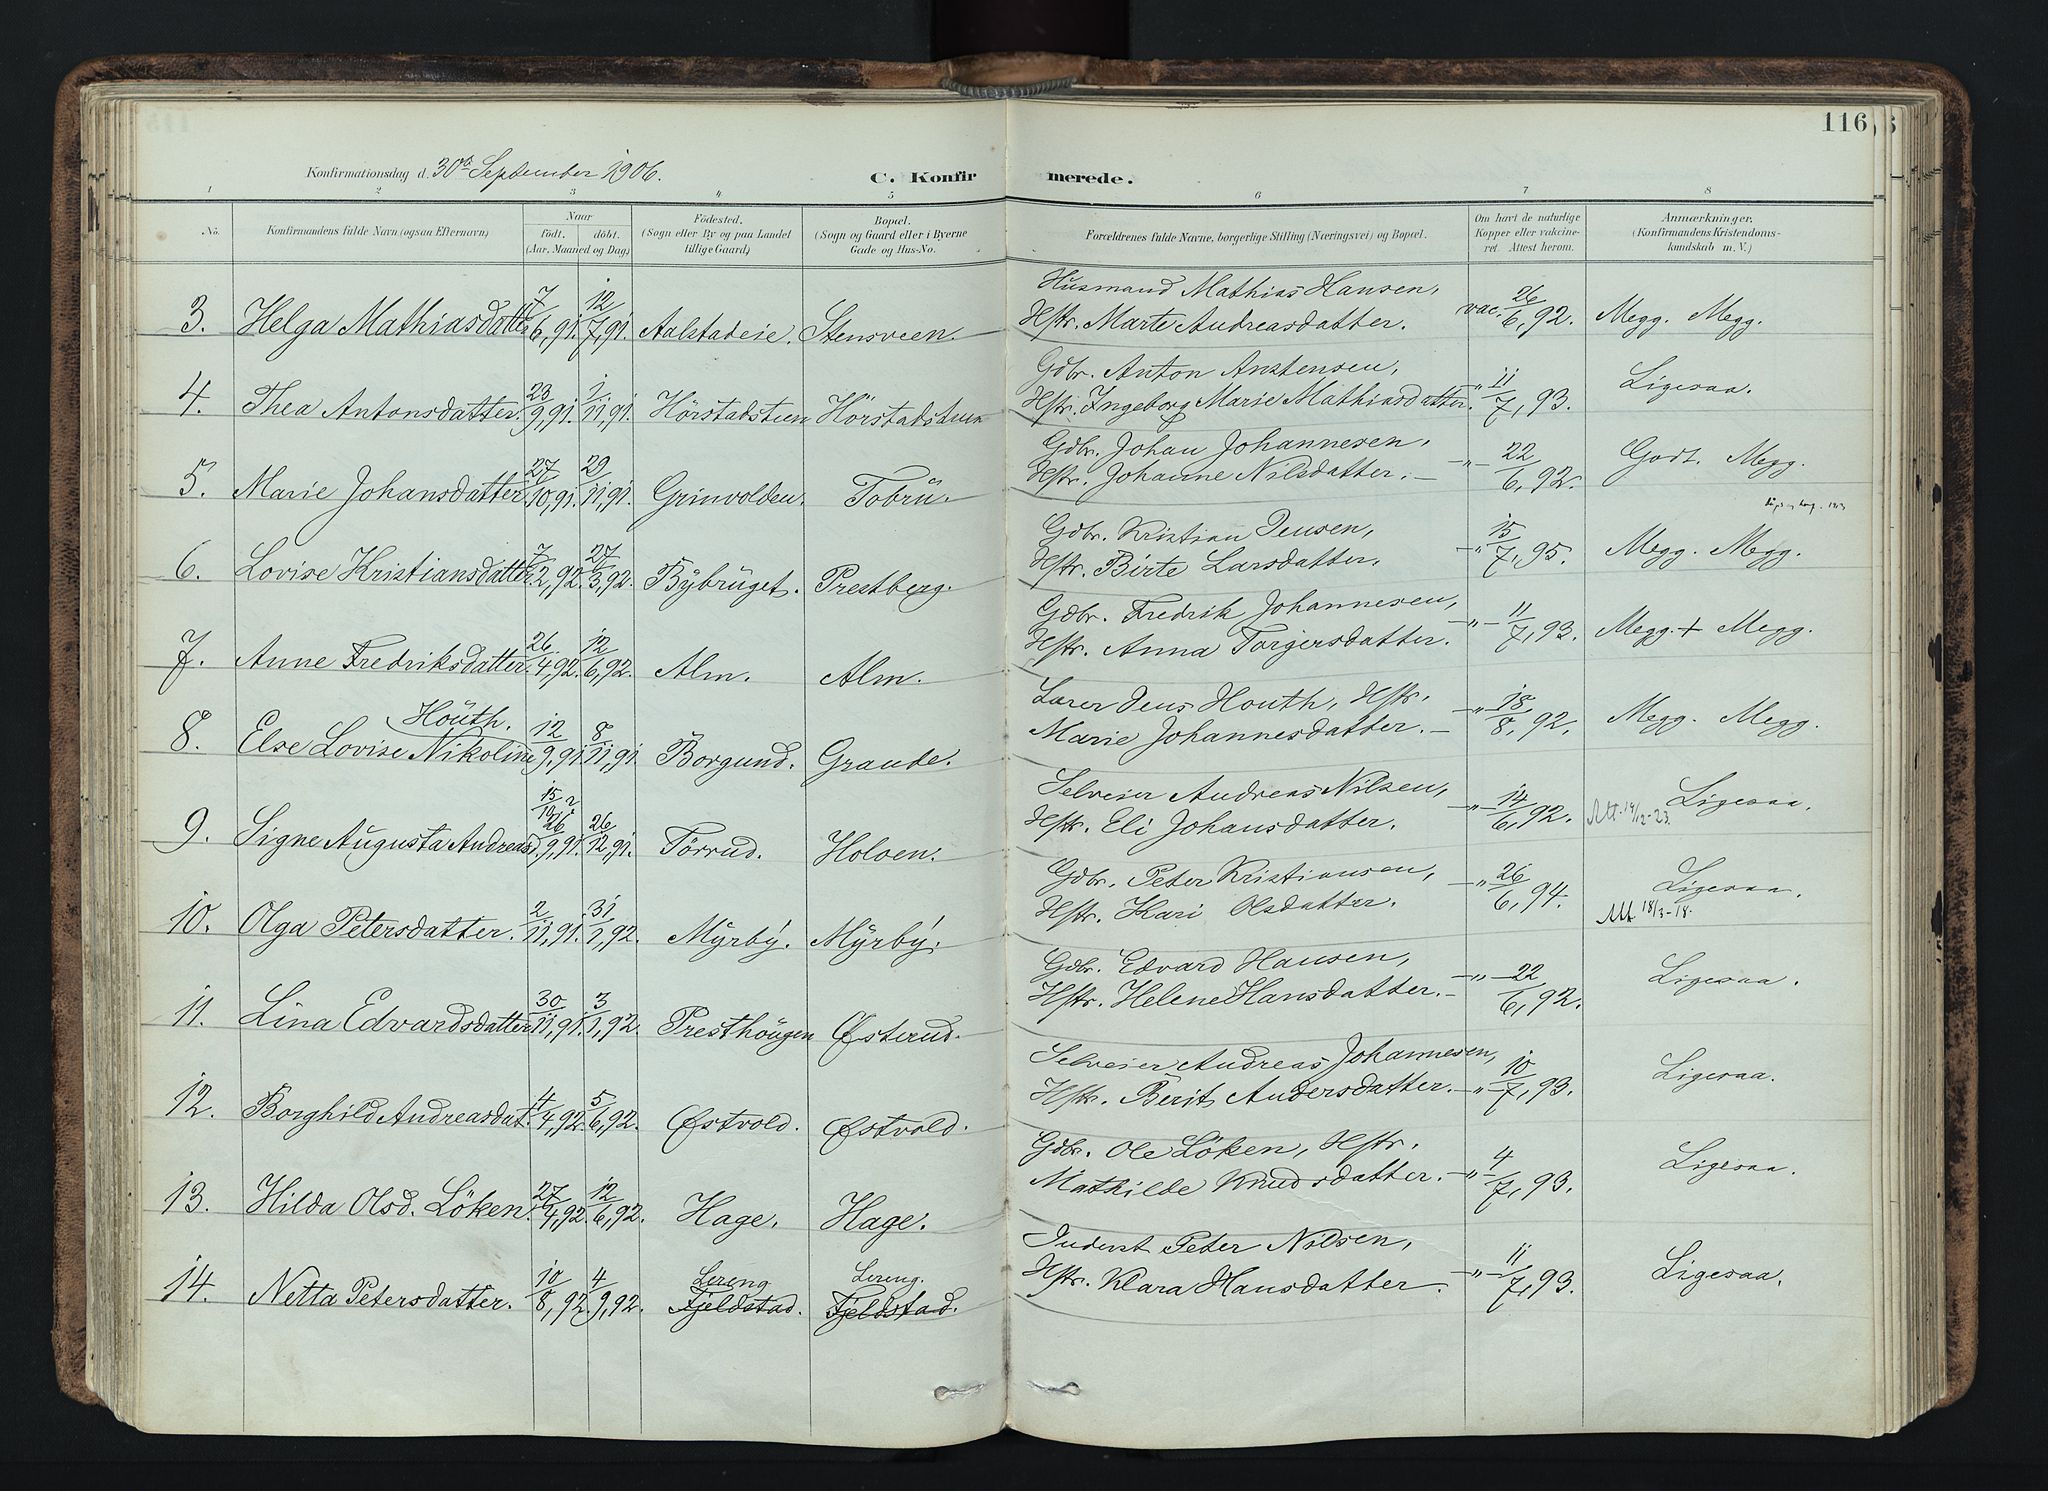 116
Konfirmationsdag d. 30te September 1906.
C. Konfirmerede.
1 2 3 4 5 6 7 8
No. Konfirmandens fulde Navn (ogsaa Efternavn) Naar født. døbt. (Aar, Maaned og Dag) Födested. (Sogn eller By og paa Landet tillige Gaard) Bopæl. (Sogn og Gaard eller i Byerne Gade og Hus-No. Forældrenes fulde Navne, borgerlige Stilling (Næringsvei) og Bopæl. Om havt de naturlige Kopper eller vakcineret. Attest herom. Anmærkninger. (Konfirmandens Kristendomskundskab m. V.)
3. Helga Mathiasdatter 7/6, 91. 12/7, 91. Aalstadeie. Stensveen. Husmand Mathias Hansen, Hstr. Marte Andreasdatter. vac. 26/6, 92. Megg. Megg.
4. Thea Antonsdatter. 23/9, 91. 1/11, 91. Hörstadstuen Hörstadstuen Gdbr. Anton Anstensen, Hstr. Ingeborg Marie Mathiasdatter. " 11/7, 93. Ligesaa.
5. Marie Johansdatter 27/10, 91. 29/11, 91. Grinvolden. Tobru. Gdbr. Johan Johannesen, Hstr. Johanne Nilsdatter. – –"– 22/6, 92. Godt. Megg.
6. Lovise Kristiansdatter 7/2, 92. 27/3, 92. Bybruget. Prestberg. Gdbr. Kristian Jensen, Hstr. Birte Larsdatter. –"– 15/7, 95. Megg. Megg.
7. Anne Fredriksdatter. 26/4, 92. 12/6, 92. Alm. Alm. Gdbr. Fredrik Johannesen, Hstr. Anna Torgersdatter. –"– 11/7, 93. Megg. + Megg.
8. Else Lovise Nikoline Höuth. 12/9, 91. 8/11, 91. Borgund. Graude. Lærer Jens Houth, Hstr. Marie Johannesdatter. – –"– 18/8, 92. Megg. Megg.
9. Signe Augusta Andreasd. 15/10 ? 26/9, 91. 26/12, 91. Törrud. Holoen. Selveier Andreas Nilsen, Hstr. Eli Johansdatter. –"– 14/6, 92. Ligesaa. Att. 19/12-23.
10. Olga Petersdatter. 2/11, 91. 31/1, 92. Myrby. Myrby. Gdbr. Peter Kristiansen, Hstr. Kari Olsdatter. –"– 26/6, 94. Ligesaa. Att. 18/3-18.
11. Lina Edvardsdatter 30/11, 91. 3/1, 92. Presthougen Østerud. Gdbr. Edvard Hansen, Hstr. Helene Hansdatter. – –"– 22/6, 92. Ligesaa.
12. Borghild Andreasdat. 4/4, 92. 5/6, 92. Østvold. Østvold. Selveier Andreas Johannesen, Hstr. Berit Andersdatter. –"– 10/7, 93. Ligesaa.
13. Hilda Olsd. Löken. 27/4, 92. 12/6, 92. Hage. Hage. Gdbr. Ole Löken, Hstr. Mathilde Knudsdatter. –"– 4/7, 93. Ligesaa.
14. Netta Petersdatter. 10/8, 92. 4/9, 92. Lereng Fjeldstad. Lereng. Fjeldstad. Inderst Peter Nilsen, Hstr. Klara Hansdatter. –"– 11/7, 93. Ligesaa.